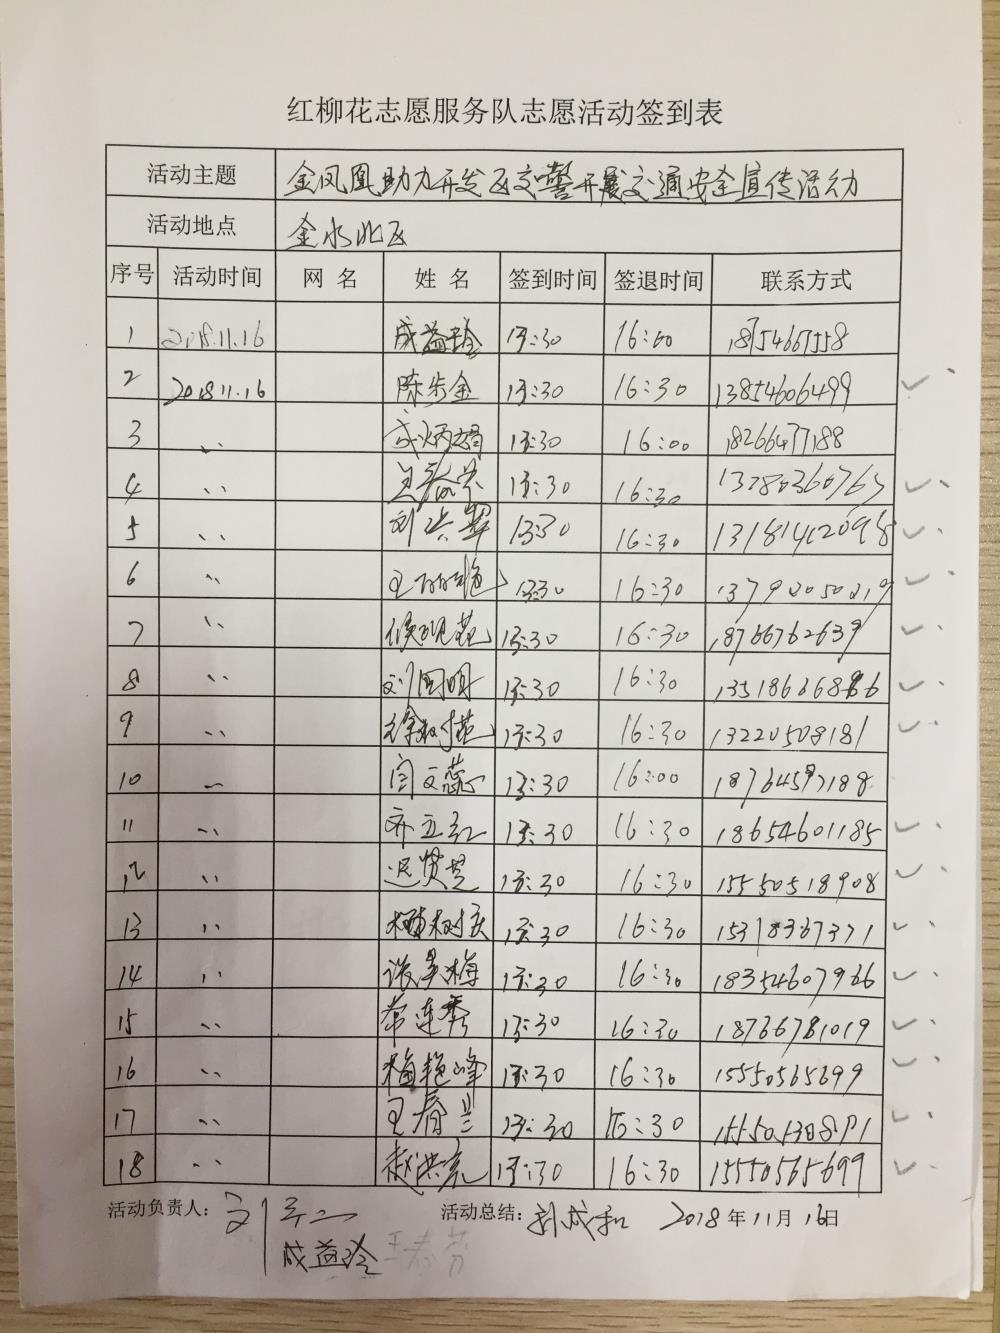 红柳花志愿服务队志愿活动签到表
活动主题 金凤凰助力开发区交警开展交通安全宣传活动
活动地点 金水北区
序号 活动时间 网 名 姓 名 签到时间 签退时间 联系方式
1 2018.11.16 成益玲 13:30 16:00 18754667558
2 2018.11.16 陈步金 13:30 16:30 13854606499
3 〃 成炳嫦 13:30 16:00 18266477188
4 〃 13:30 16:30 13280360765
5 〃 刘洪翠 13:30 16:30 13181412098
6 〃 13:30 16:30 13792050219
7 〃 侯现花 13:30 16:30 18766762639
8 〃 刘国明 13:30 16:30
9 〃 徐树花 13:30 16:30 13220508181
10 〃 闫文蕊 13:30 16:00 18764597188
11 〃 齐立红 13:30 16:30 18654601185
12 〃 迟贤芝 13:30 16:30 15550518908
13 〃 13:30 16:30 15318367371
14 〃 张美梅 13:30 16:30 18354607966
15 〃 常连秀 13:30 16:30 18766781019
16 〃 梅艳峰 13:30 16:30 15550565699
17 〃 王春兰 13:30 16:30
18 〃 赵洪亮 13:30 16:30 15550565699
活动负责人: 刘 活动总结: 孙成和 2018年11月16日
成益玲 王春芬